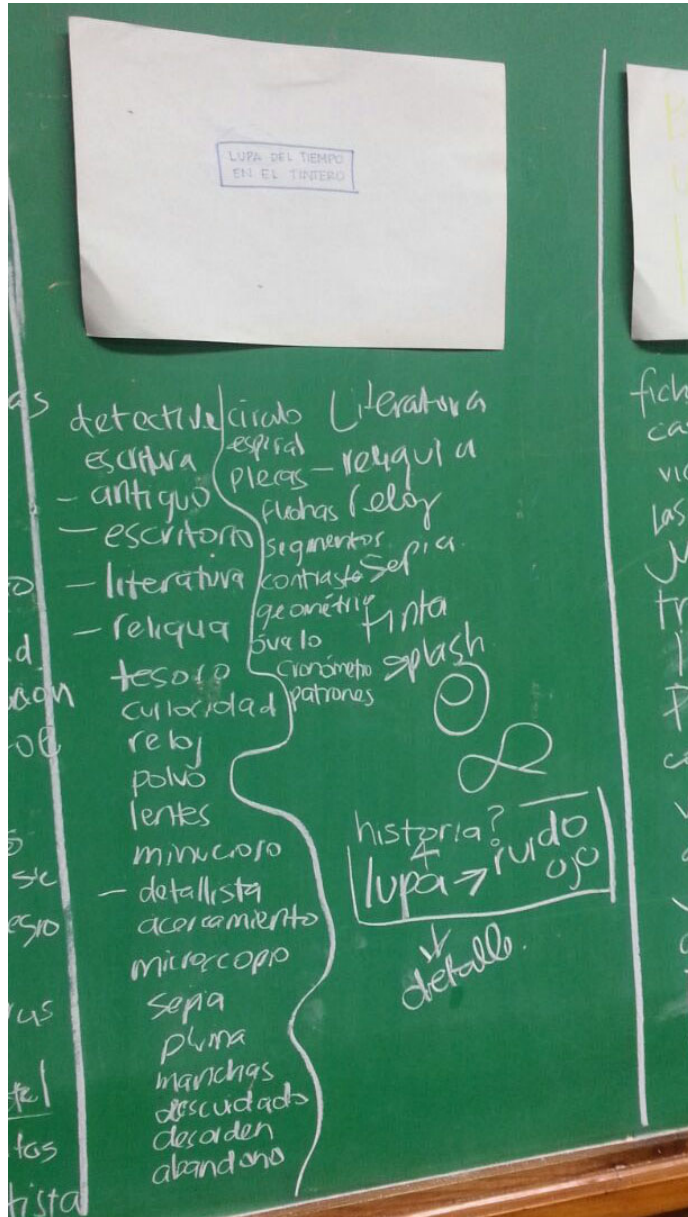 LUPA DEL TIEMPO
EN EL TINTERO
detective
escritura
- antiguo
- escritorio
- literatura
- reliqua
tesoro
curiocidad
reloj
polvo
lentes
minucioso
- detallista
acercamiento
microscopio
sepia
pluma
manchas
descuidado
desorden
abandono
círculo
espiral
plecas
flechas
segmentos
contraste
geométric
óvalo
cronómetro
patrones
Literatura
- reliquia
reloj
sepia
tinta
splash
historia?
lupa → ruido
ojo
detalle.
as
d
s
sic
esio
us
tas
tista
fich
cas
vic
las
tr
P